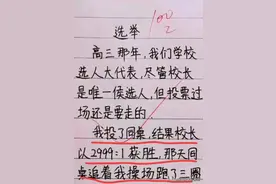 100
选举
高三那年,我们学校
选人大代表,尽管校长
是唯一候选人,但投票过
场还是要走的
我投了同桌,结果校长
以2999:1获胜,那天同
桌追着我操场跑了三圈